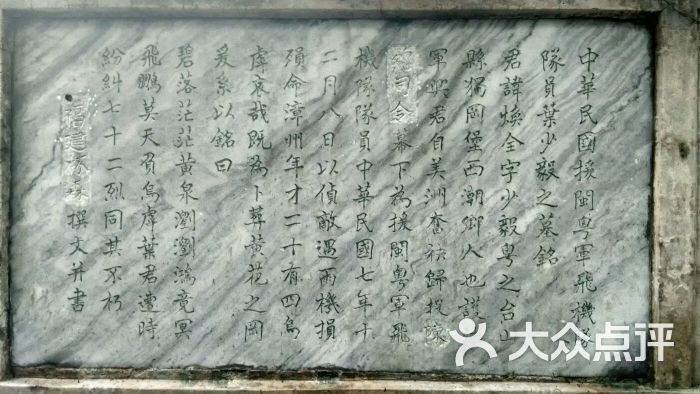 中華民國援閩粵軍飛機隊
隊員葉少毅之墓銘
君諱煥全字少毅粵之台山
縣獨岡堡西潮鄉人也護
軍興君自美洲奮袂歸投隊
總司令幕下為援閩粵軍飛
機隊隊員中華民國七年十
二月八日以偵敵遇雨機損
殞命漳州年才二十有四烏
虖哀哉既為卜葬黃花之岡
爰系以銘曰
碧落茫茫黃泉瀏瀏鴻竟冥
飛鵬莫天負烏虖葉君遭時
紛糾七十二烈同其不朽
福建林森撰文并書
大众点评